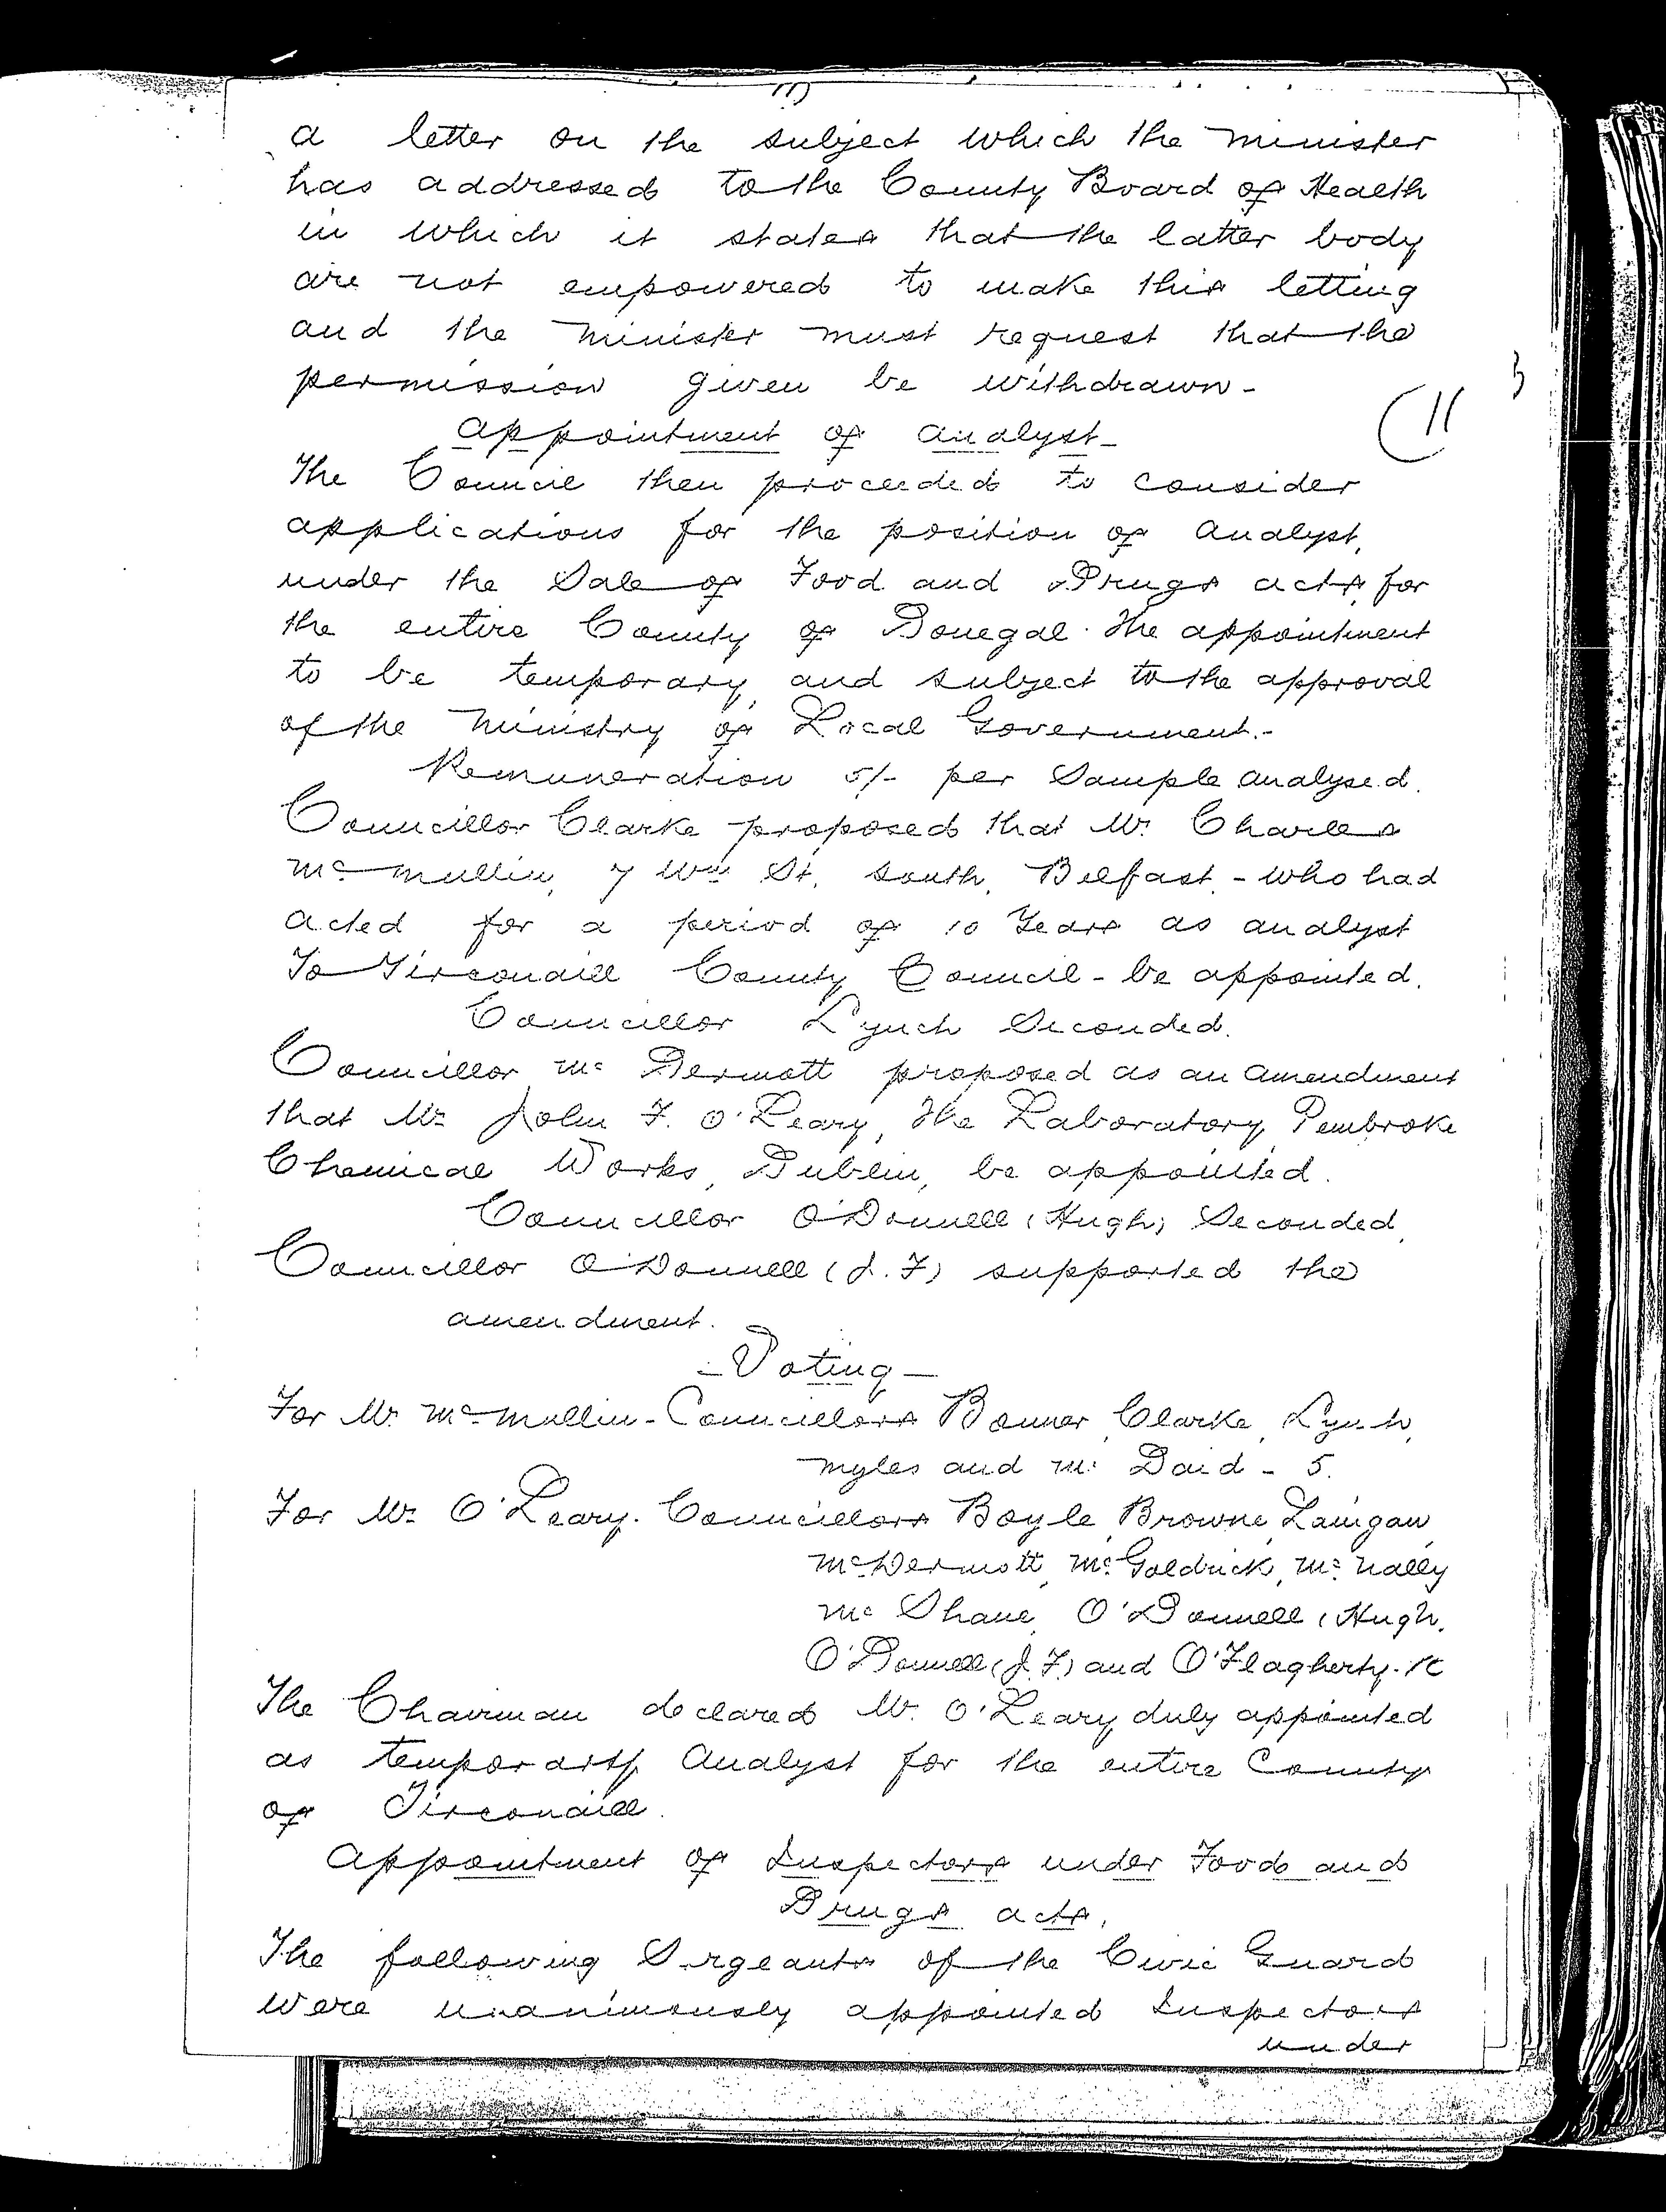 11)
a letter on the subject which the Minister
has addressed to the County Board of Health
in which it states that the latter body
are not empowered to make this letting
and the Minister must request that the
permission given be withdrawn -
(11
Appointment of Analyst -
The Council then proceeded to consider
applications for the position of Analyst,
under the Sale of Food and Drugs Acts, for
the entire County of Donegal. The appointment
to be temporary, and subject to the approval
of the Ministry of Local Government. -
Remuneration 5/- per Sample analysed.
Councillor Clarke proposed that Mr. Charles
McMullin, 7 Wm St. South, Belfast, - who had
acted for a period of 10 Years as analyst
To Tirconaill County Council - be appointed.
Councillor Lynch Seconded.
Councillor McDermott proposed as an amendment
that Mr John F. O'Leary, The Laboratory, Pembroke
Chemical Works, Dublin, be appointed.
Councillor O'Donnell (Hugh) Seconded.
Councillor O'Donnell (J. F) supported the
amendment.
- Voting -
For Mr. McMullin - Councillors Bonner, Clarke, Lynch,
Myles and McDaid - 5.
For Mr. O'Leary. Councillors Boyle, Browne, Lanigan,
McDermott, McGoldrick, McNally
McShane, O'Donnell (Hugh.
O'Donnell (J. F.) and O'Flagherty. 10
The Chairman declared Mr. O'Leary duly appointed
as temporary Analyst for the entire County
of Tirconaill.
Appointment of Inspectors under Food and
Drugs Acts.
The following Sergeants of the Civic Guard
were unanimously appointed Inspectors
under